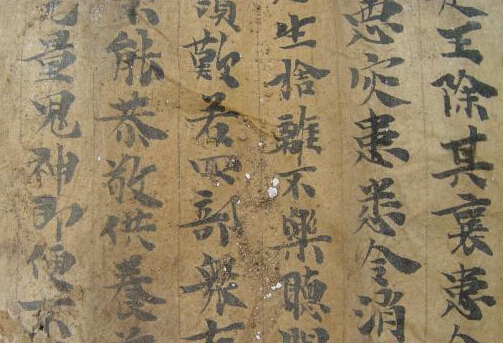 王除其衰患令
惡灾患悉令消
生捨離不樂聽聞
歎若四部衆有
能恭敬供養
量鬼神即便不